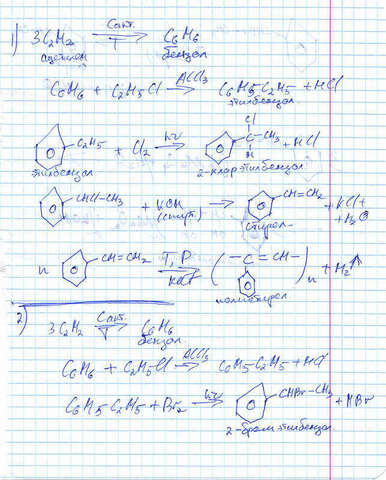 1) 3C2H2 Cакт. T C6H6
ацетилен бензол
C6H6 + C2H5Cl AlCl3 C6H5C2H5 + HCl
этилбензол
C2H5 + Cl2 hν Cl C CH3 H + HCl
этилбензол 2-хлорэтилбензол
CHCl-CH3 + KOH (спирт.) CH=CH2 + KCl +
стирол + H2O
n CH=CH2 T, P кат (-C=CH-)n + H2↑
полистирол
2) 3C2H2 Cакт. T C6H6
бензол
C6H6 + C2H5Cl AlCl3 C6H5C2H5 + HCl
C6H5C2H5 + Br2 hν CHBr-CH3 + HBr
2-бромэтилбензол